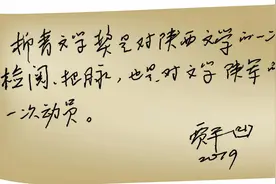 柳青文学奖是对陕西文学的一
检阅、把脉，也是对文学陕军的
一次动员。
贾平凹
2019